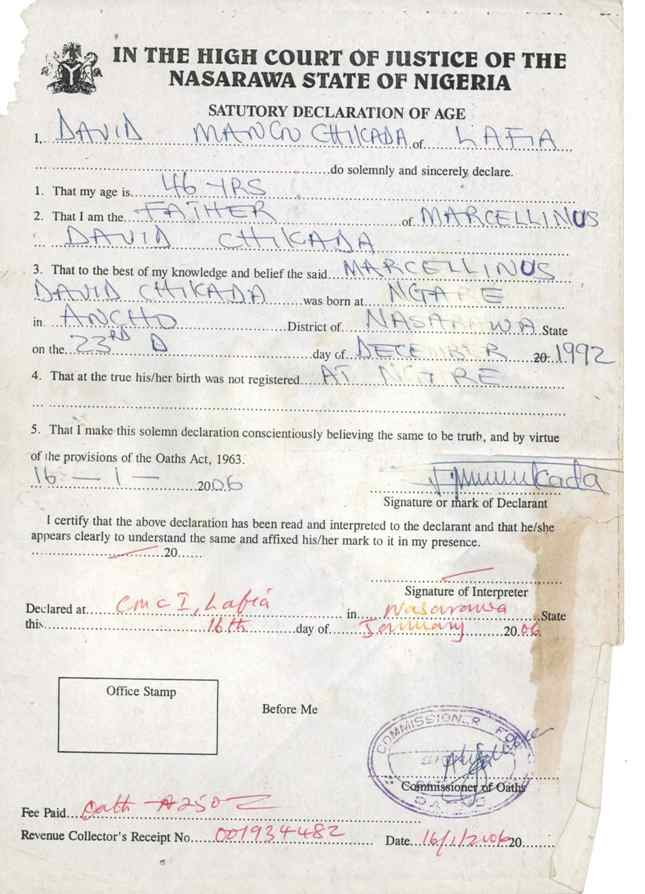 IN THE HIGH COURT OF JUSTICE OF THE
NASARAWA STATE OF NIGERIA
SATUTORY DECLARATION OF AGE
1. DAVID MANGU CHIKADA of LAFIA
do solemnly and sincerely declare.
1. That my age is 46 YRS
2. That I am the FATHER of MARCELLINUS
DAVID CHIKADA
3. That to the best of my knowledge and belief the said MARCELLINUS
DAVID CHIKADA was born at NGARE
in ANCHO District of NASARAWA State
on the 23RD D day of DECEMBER 20 1992
4. That at the true his/her birth was not registered AT NGARE
5. That I make this solemn declaration conscientiously believing the same to be truth, and by virtue
of the provisions of the Oaths Act, 1963.
16 — 1 — 2006
Signature or mark of Declarant
I certify that the above declaration has been read and interpreted to the declarant and that he/she
appears clearly to understand the same and affixed his/her mark to it in my presence.
20
Signature of Interpreter
Declared at CMC I, Lafia in Nasarawa State
this 16th day of January 2006
Office Stamp
Before Me
COMMISSIONER FOR
Commissioner of Oaths
Fee Paid oath
Revenue Collector's Receipt No. 001934482 Date 16/1/2006 20